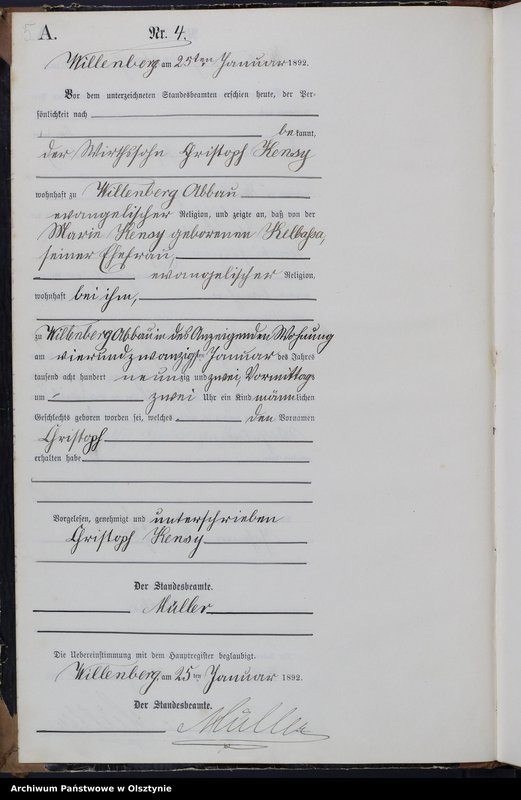 5 A.
Nr. 4.
Willenberg am 25ten Januar 1892.
Vor dem unterzeichneten Standesbeamten erschien heute, der Per-
sönlichkeit nach
bekannt,
der Wirthssohn Christoph Kensy
wohnhaft zu Willenberg Abbau
evangelischer Religion, und zeigte an, daß von der
Marie Kensy geborenen Kelbassa,
seiner Ehefrau,
evangelischer Religion,
wohnhaft bei ihm,
zu Willenberg Abbau in des Anzeigenden Wohnung
am vierundzwanzigsten Januar des Jahres
tausend acht hundert neunzig und zwei, Vormittags
um zwei Uhr ein Kind männlichen
Geschlechts geboren worden sei, welches den Vornamen
Christoph
erhalten habe
Vorgelesen, genehmigt und unterschrieben
Christoph Kensy
Der Standesbeamte.
Müller
Die Uebereinstimmung mit dem Hauptregister beglaubigt.
Willenberg, am 25ten Januar 1892.
Der Standesbeamte.
Müller
Archiwum Państwowe w Olsztynie